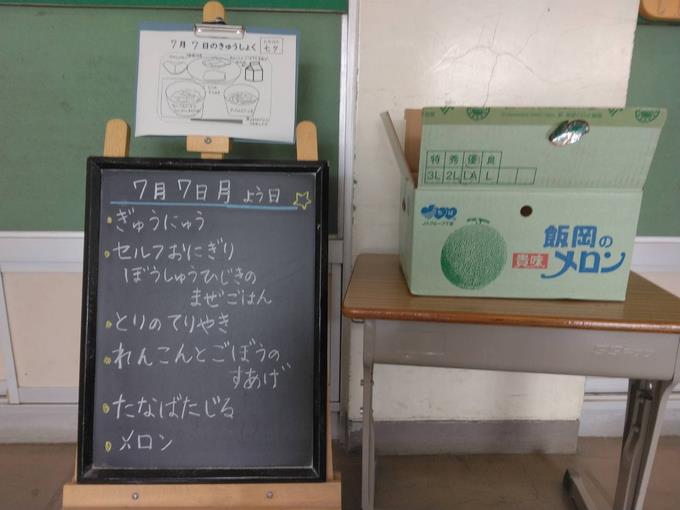 7月7日のきゅうしょく
七夕
7月7日月よう日
ぎゅうにゅう
セルフおにぎり
ぼうしゅうひじきの
まぜごはん
とりのてりやき
れんこんとごぼうの
すあげ
たなばたじる
メロン
特秀優良
3L 2L LA L
JAグループ千葉
飯岡の
貴味メロン